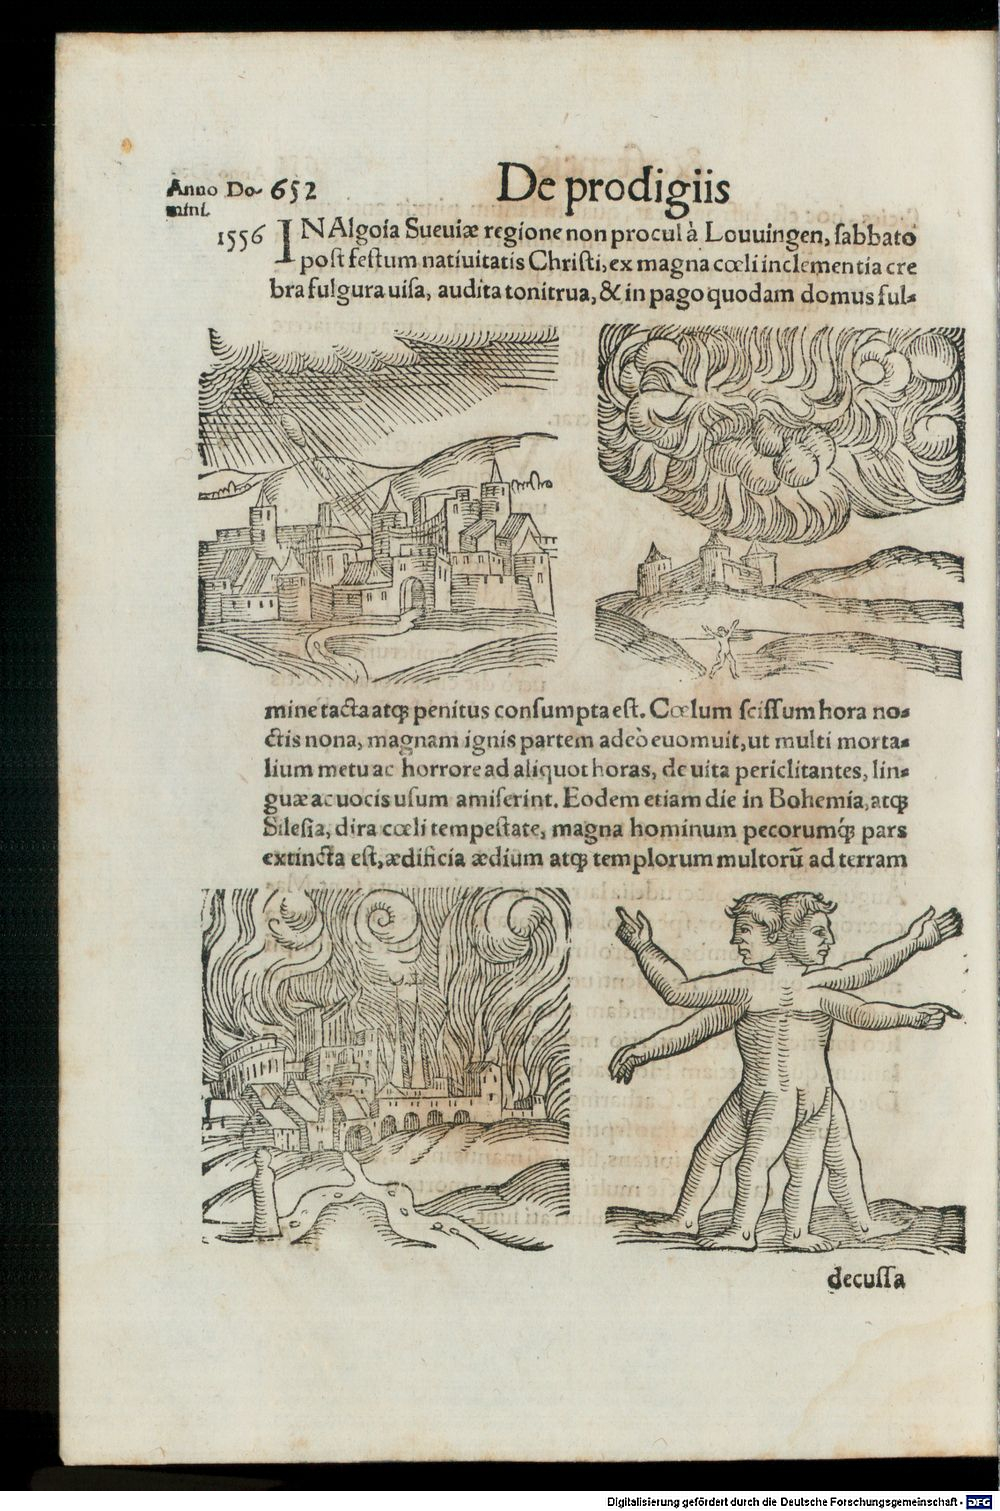 Anno Do- 652 De prodigiis
mini.
1556 IN Algoia Sueuiæ regione non procul à Louuingen, sabbato
post festum natiuitatis Christi, ex magna cœli inclementia cre
bra fulgura uisa, audita tonitrua, & in pago quodam domus ful-
mine tacta atq; penitus consumpta est. Cœlum scissum hora no-
ctis nona, magnam ignis partem adeò euomuit, ut multi morta-
lium metu ac horrore ad aliquot horas, de uita periclitantes, lin-
guæ ac uocis usum amiserint. Eodem etiam die in Bohemia, atq;
Silesia, dira cœli tempestate, magna hominum pecorumq́; pars
extincta est, ædificia ædium atq; templorum multorũ ad terram
decussa
Digitalisierung gefördert durch die Deutsche Forschungsgemeinschaft - DFG